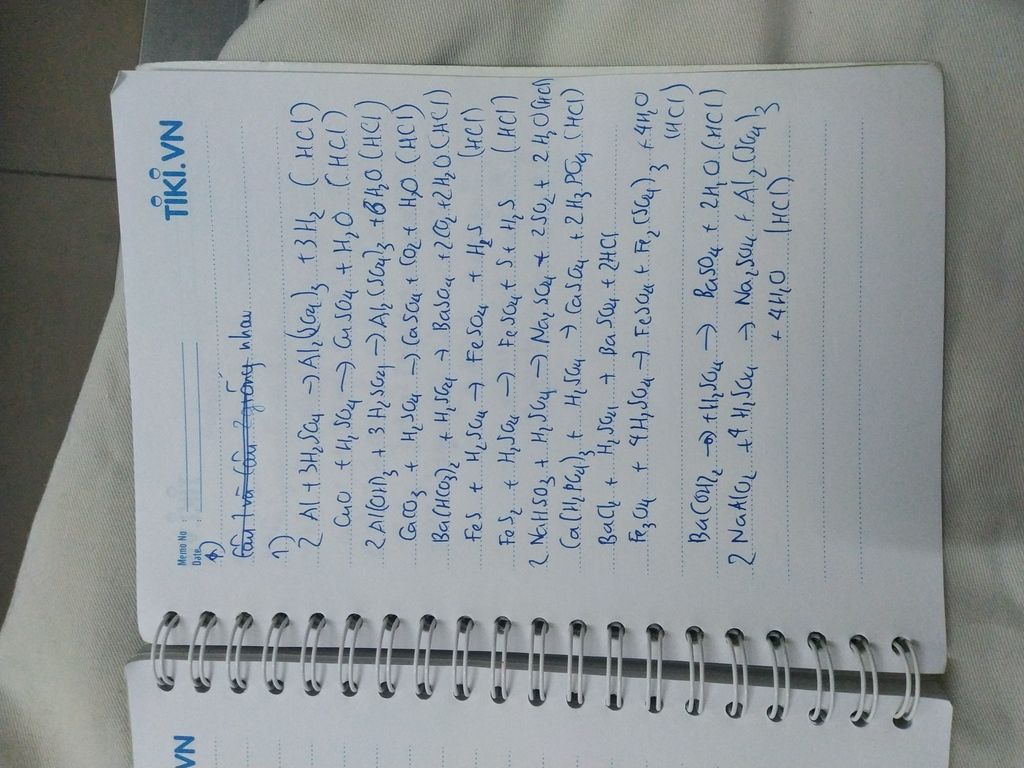 TIKI.VN
Memo No :
Date
1)
2 Al + 3H₂SO₄ → Al₂(SO₄)₃ + 3H₂ (HCl)
CuO + H₂SO₄ → CuSO₄ + H₂O (HCl)
2Al(OH)₃ + 3H₂SO₄ → Al₂(SO₄)₃ + 6H₂O (HCl)
CaCO₃ + H₂SO₄ → CaSO₄ + CO₂ + H₂O (HCl)
Ba(HCO₃)₂ + H₂SO₄ → BaSO₄ + 2CO₂ + 2H₂O (HCl)
FeS + H₂SO₄ → FeSO₄ + H₂S (HCl)
FeS₂ + H₂SO₄ → FeSO₄ + S + H₂S (HCl)
2NaHSO₃ + H₂SO₄ → Na₂SO₄ + 2SO₂ + 2H₂O (HCl)
Ca(H₂PO₄)₂ + H₂SO₄ → CaSO₄ + 2H₃PO₄ (HCl)
BaCl₂ + H₂SO₄ → BaSO₄ + 2HCl
Fe₃O₄ + 4H₂SO₄ → FeSO₄ + Fe₂(SO₄)₃ + 4H₂O
(HCl)
Ba(OH)₂ + H₂SO₄ → BaSO₄ + 2H₂O (HCl)
2 NaAlO₂ + 4 H₂SO₄ → Na₂SO₄ + Al₂(SO₄)₃
+ 4H₂O (HCl)
VN